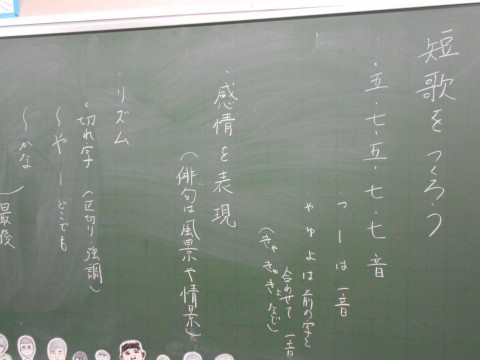 短歌をつくろう
・五・七・五・七・七音
っーは一音
ゃゅょは前の字と
合わせて一音
(きゃきゅきょなど)
・感情を表現
(俳句は風景や情景)
・リズム
・切れ字(区切り・強調)
～や－どこでも
～かな
最後